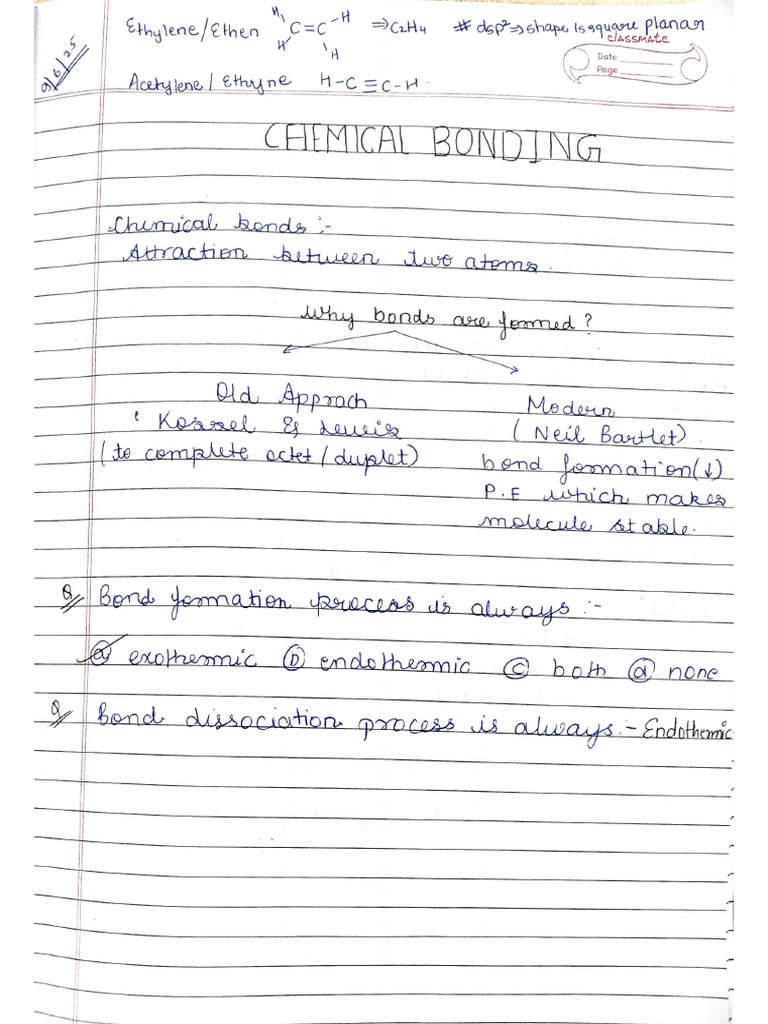 9/6/25
Ethylene/Ethen H H C=C H H ⇒ C2H4 # dsp² ⇒ shape is square planar
CLASSMATE
Date
Page
Acetylene / Ethyne H-C≡C-H.
CHEMICAL BONDING
Chemical bonds :-
Attraction between two atoms.
Why bonds are formed?
Old Apprach
Kossel & Lewis
(to complete octet/duplet)
Modern
(Neil Bartlet).
bond formation(↓)
P.E which makes
molecule stable.
Q// Bond formation process is always :-
(a) exothermic (b) endothermic (c) both (d) none
Q// Bond dissociation process is always :- Endothermic